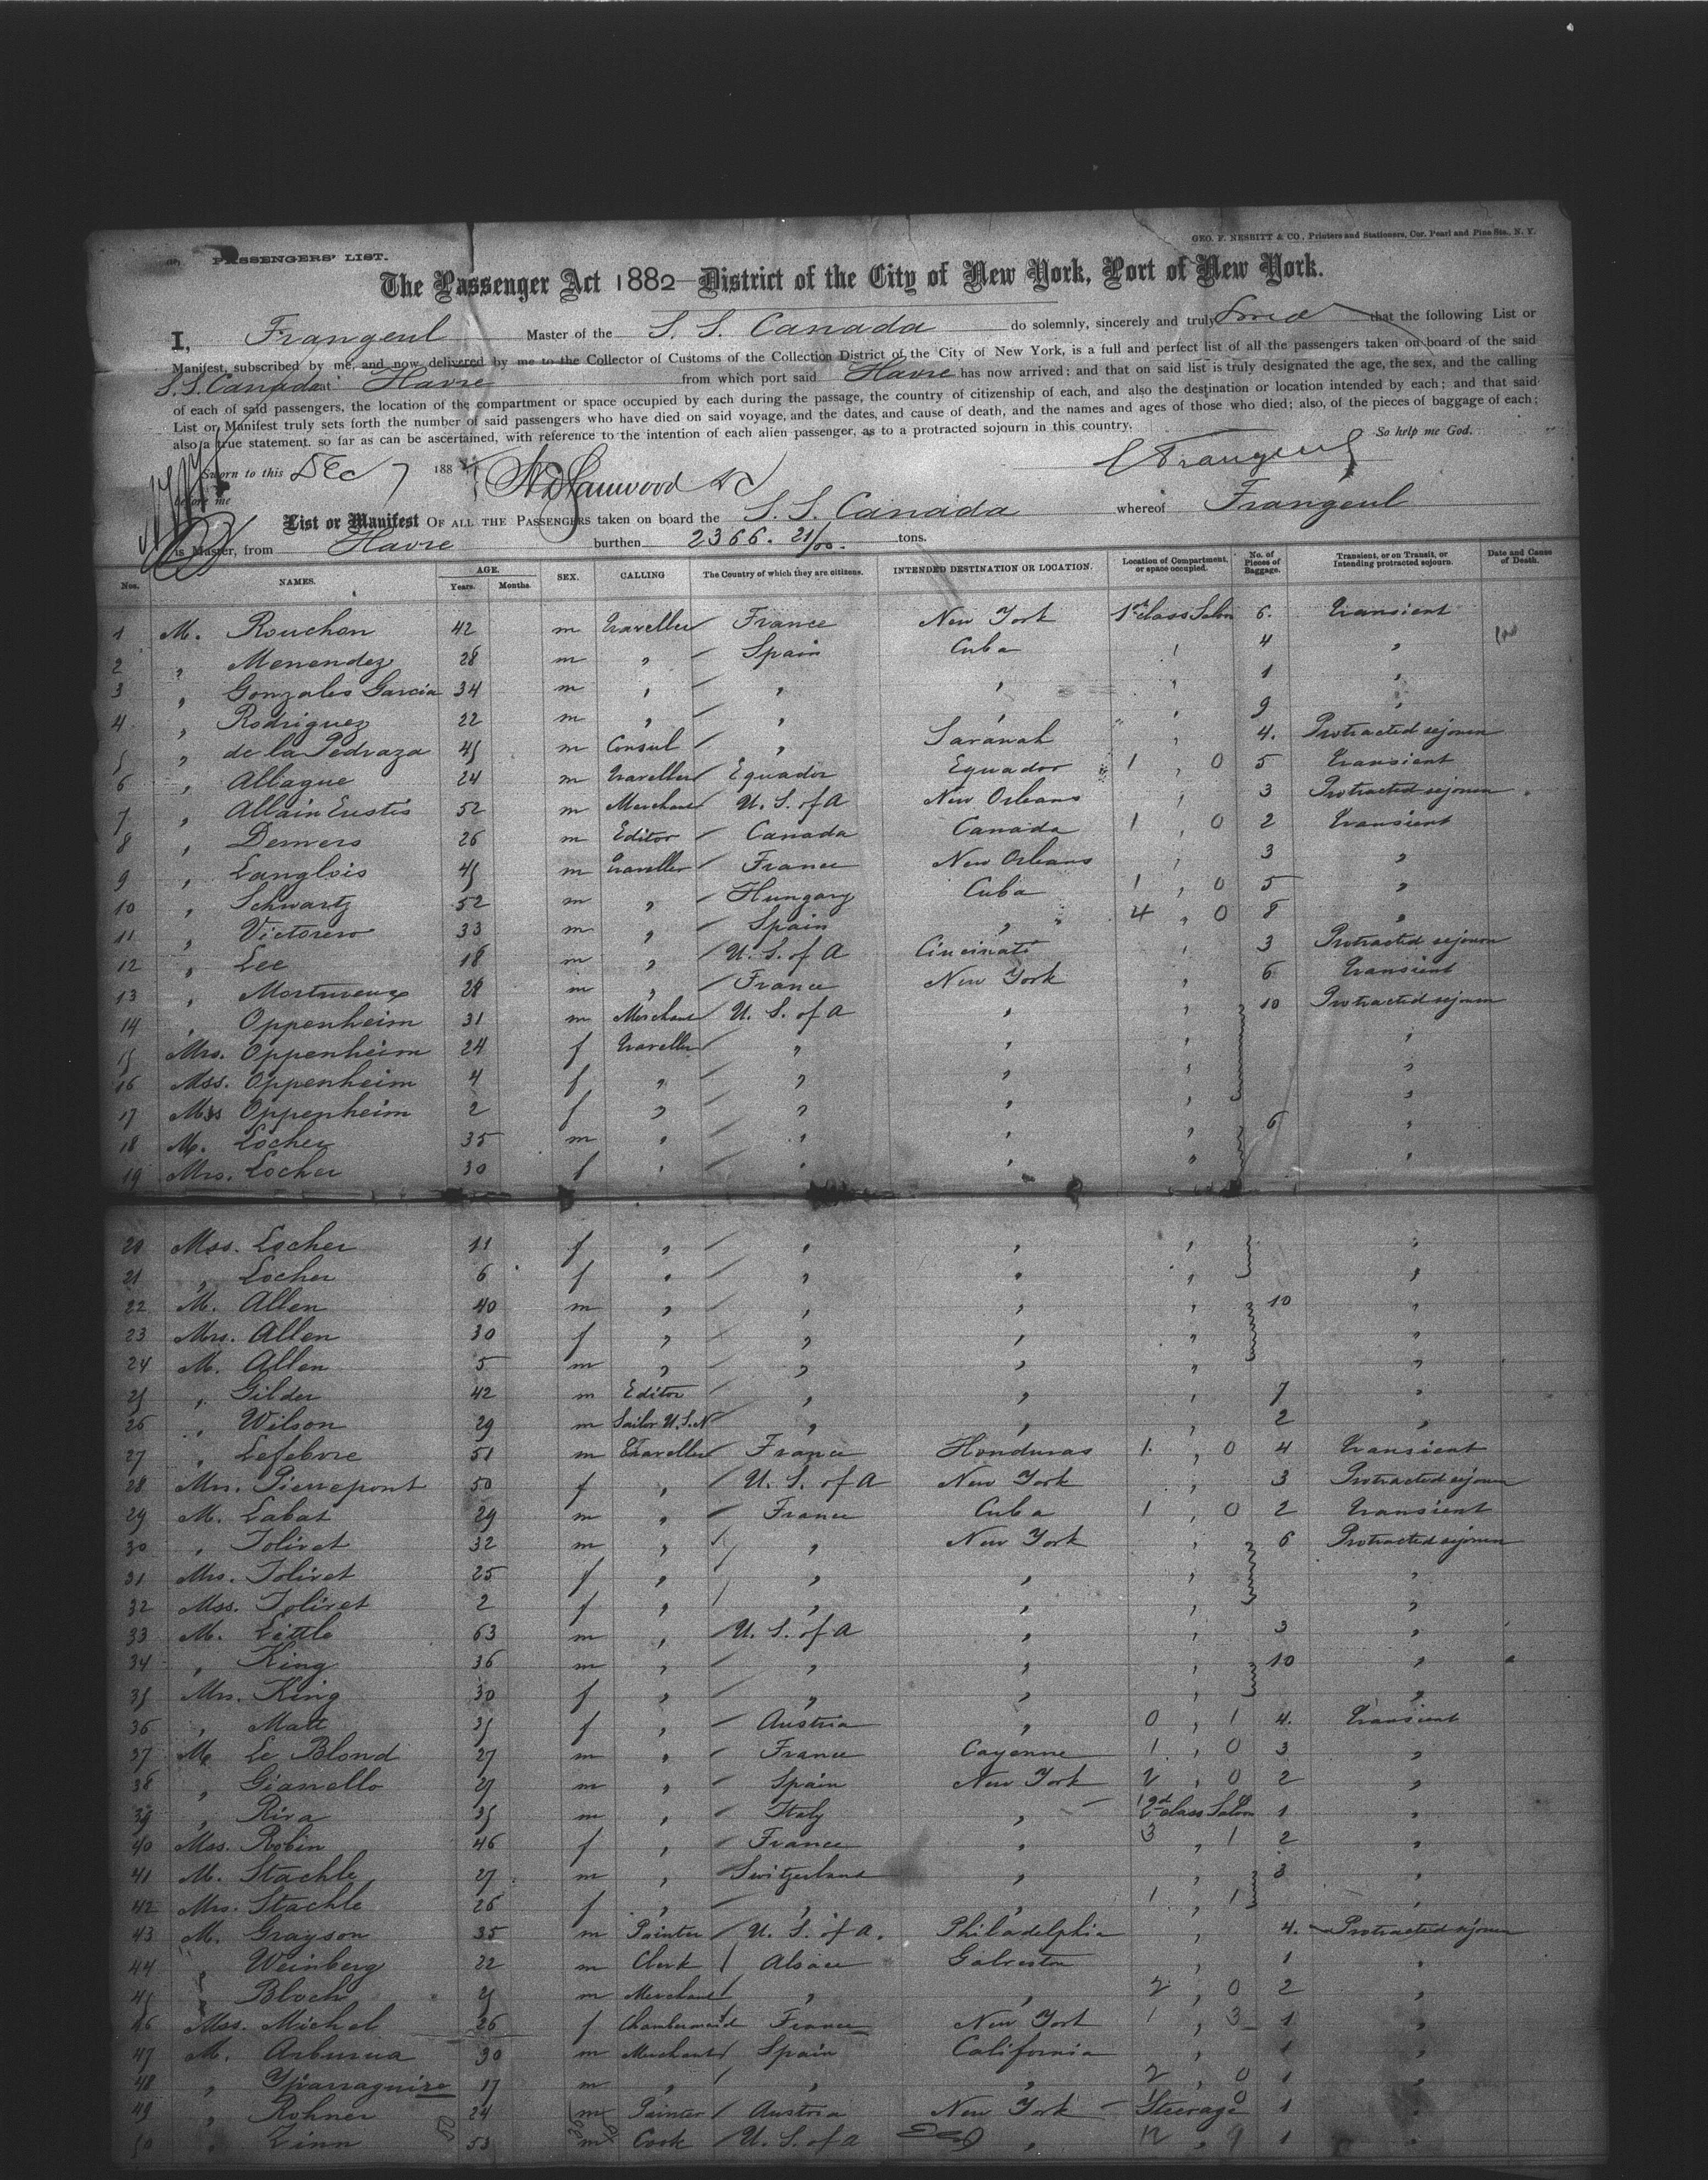 PASSENGERS' LIST.
GEO. F. NESBITT & CO., Printers and Stationers, Cor. Pearl and Pine Sts., N. Y.
The Passenger Act 1882 District of the City of New York, Port of New York.
I, Frangeul Master of the S. S. Canada do solemnly, sincerely and truly that the following List or
Manifest, subscribed by me, and now delivered by me to the Collector of Customs of the Collection District of the City of New York, is a full and perfect list of all the passengers taken on board of the said
S. S. Canada at Havre from which port said Havre has now arrived: and that on said list is truly designated the age, the sex, and the calling
of each of said passengers, the location of the compartment or space occupied by each during the passage, the country of citizenship of each, and also the destination or location intended by each; and that said
List or Manifest truly sets forth the number of said passengers who have died on said voyage, and the dates, and cause of death, and the names and ages of those who died; also, of the pieces of baggage of each;
also a true statement, so far as can be ascertained, with reference to the intention of each alien passenger, as to a protracted sojourn in this country.
So help me God.
Sworn to this Dec 7 188
before me
Frangeul
List or Manifest OF ALL THE PASSENGERS taken on board the S. S. Canada whereof Frangeul
is Master, from Havre burthen 2366. 21/00. tons.
Nos. NAMES. AGE. Years. Months. SEX. CALLING The Country of which they are citizens. INTENDED DESTINATION OR LOCATION. Location of Compartment, or space occupied. No. of Pieces of Baggage. Transient, or on Transit, or Intending protracted sojourn. Date and Cause of Death.
1 M. Rouchon 42 m traveller France New York 1st class Salon 6. transient
2 " Menendez 28 m " Spain Cuba " 4 "
3 " Gonzales Garcia 34 m " " " " 1 "
4 " Rodriguez 22 m " " " " 9 "
5 " de la Pedraza 45 m Consul " Savanah " 4. Protracted sejourn
6 " Allague 24 m traveller Equador Equador 1 , 0 5 transient
7 " Allain Eustis 52 m Merchant U. S. of A New Orleans " 3 Protracted sejourn
8 " Demers 26 m Editor Canada Canada 1 , 0 2 transient
9 " Langlois 45 m traveller France New Orleans " 3 "
10 " Schwartz 52 m " Hungary Cuba 1 , 0 5 "
11 " Victorero 33 m " Spain " 4 , 0 8 "
12 " Lee 18 m " U. S. of A Cincinati " 3 Protracted sejourn
13 " 28 m " France New York " 6 transient
14 " Oppenheim 31 m Merchant U. S. of A " " 10 Protracted sejourn
15 Mrs. Oppenheim 24 f traveller " " " "
16 Mss. Oppenheim 4 f " " " " "
17 Mss Oppenheim 2 f " " " " "
18 M. Locher 35 m " " " " 6 "
19 Mrs. Locher 30 f " " " " "
20 Mss. Locher 11 f " " " " "
21 " Locher 6 f " " " " "
22 M. Allen 40 m " " " " 10 "
23 Mrs. Allen 30 f " " " " "
24 M. Allen 5 m " " " " "
25 " Gilder 42 m Editor " " " 7 "
26 " Wilson 29 m Sailor U.S.N " " " 2 "
27 " Lefebvre 51 m traveller France Honduras 1 , 0 4 transient
28 Mrs. Pierrepont 50 f " U. S. of A New York " 3 Protracted sejourn
29 M. Labat 29 m " France Cuba 1 , 0 2 transient
30 " Tolivet 32 m " " New York " 6 Protracted sejourn
31 Mrs. Tolivet 25 f " " " " "
32 Mss. Tolivet 2 f " " " " "
33 M. Little 63 m " U. S. of A " " 3 "
34 " King 36 m " " " " 10 "
35 Mrs. King 30 f " " " " "
36 " Matt 35 f " Austria " 0 , 1 4. transient
37 M. Le Blond 27 m " France Cayenne 1 , 0 3 "
38 " Gianello 27 m " Spain New York 2 , 0 2 "
39 " Riva 35 m " Italy " 2d class Salon 1 "
40 Mss. Robin 46 f " France " 3 , 1 2 "
41 M. Stachle 27 m " Switzerland " " 3 "
42 Mrs. Stachle 26 f " " " 1 , 1 "
43 M. Grayson 35 m Painter U. S. of A. Philadelphia " 4. Protracted sejourn
44 " Weinberg 22 m Clerk Alsace Galveston " 1 "
45 " Bloch m Merchant " " 2 , 0 2 "
46 Mss. Michel 26 f Chambermaid France New York 1 , 3 1 "
47 M. Arburua 30 m Merchant Spain California " 1 "
48 " Yparraguire 17 m " " " 2 , 0 1 "
49 " Rohner 24 m Painter Austria New York Steerage 0 1 "
50 " Linn 53 m Cook U. S. of A " 12 , 9 1 "